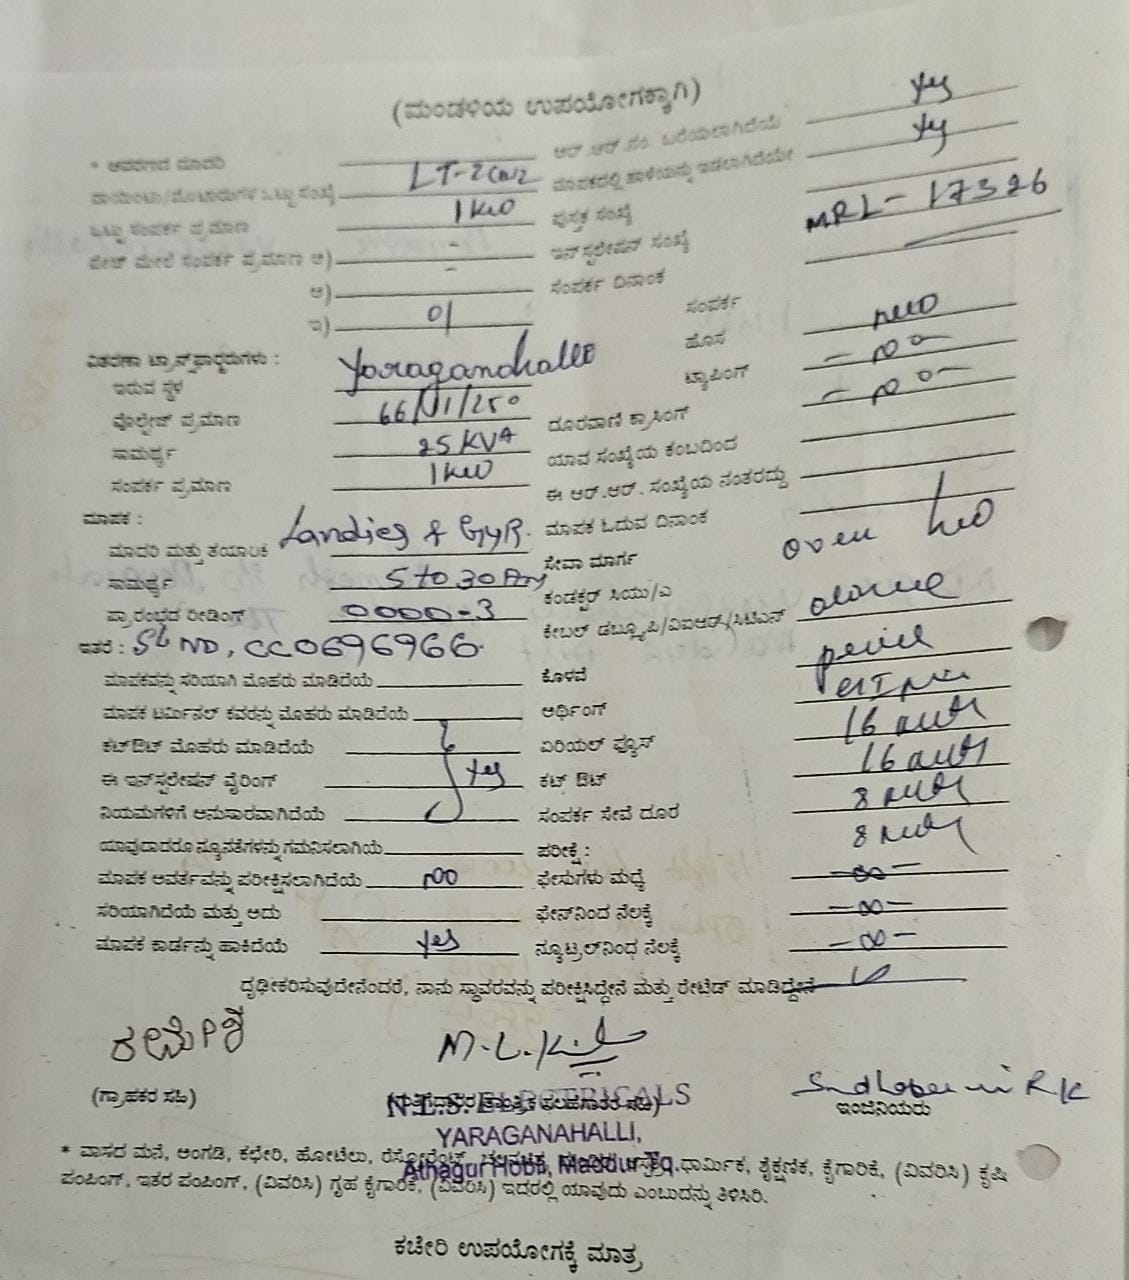 (ಮಂಡಳಿಯ ಉಪಯೋಗಕ್ಕಾಗಿ)
ಆರ್.ಆರ್.ನಂ. ಬರೆಯಲಾಗಿದೆಯೆ yes
* ಆವರಣದ ಮಾದರಿ LT-2
yes
ಒಟ್ಟು ಸಂಪರ್ಕ ಪ್ರಮಾಣ 1 KW ಪುಸ್ತಕ ಸಂಖ್ಯೆ
ಅ) - ಇನ್‌ಸ್ಟಲೇಷನ್ ಸಂಖ್ಯೆ MRL-17326
ಆ) - ಸಂಪರ್ಕ ದಿನಾಂಕ
ಇ) 01 ಸಂಪರ್ಕ
ವಿತರಣಾ ಟ್ರಾನ್ಸ್‌ಫಾರ್ಮರುಗಳು : ಹೊಸ new
ಇರುವ ಸ್ಥಳ Yaraganahalli ಟ್ಯಾಪಿಂಗ್ - no -
ವೋಲ್ಟೇಜ್ ಪ್ರಮಾಣ 66/11/250 ದೂರವಾಣಿ ಕ್ರಾಸಿಂಗ್ - no -
ಸಾಮರ್ಥ್ಯ 25 KVA ಯಾವ ಸಂಖ್ಯೆಯ ಕಂಬದಿಂದ
ಸಂಪರ್ಕ ಪ್ರಮಾಣ 1 KW ಈ ಆರ್.ಆರ್. ಸಂಖ್ಯೆಯ ನಂತರದ್ದು
ಮಾಪಕ : ಮಾಪಕ ಓದುವ ದಿನಾಂಕ
ಮಾದರಿ ಮತ್ತು ತಯಾರಿಕೆ Landies & GYR. ಸೇವಾ ಮಾರ್ಗ
ಸಾಮರ್ಥ್ಯ 5 to 30 Am ಕಂಡಕ್ಟರ್ ಸಿಯು/ಎ
ಪ್ರಾರಂಭದ ರೀಡಿಂಗ್ 0000-3 ಕೇಬಲ್ ಡಬ್ಲ್ಯೂಪಿ/ವಿಐಆರ್/ಸಿಟಿಎಸ್
ಇತರೆ : Sl No, CC0696966. ಕೊಳವೆ
ಮಾಪಕವನ್ನು ಸರಿಯಾಗಿ ಮೊಹರು ಮಾಡಿದೆಯೆ
ಮಾಪಕ ಟರ್ಮಿನಲ್ ಕವರನ್ನು ಮೊಹರು ಮಾಡಿದೆಯೆ ಅರ್ಥಿಂಗ್
ಕಟ್‌ಔಟ್ ಮೊಹರು ಮಾಡಿದೆಯೆ ಏರಿಯಲ್ ಫ್ಯೂಸ್ 16
ಈ ಇನ್‌ಸ್ಟಲೇಷನ್ ವೈರಿಂಗ್ yes ಕಟ್ ಔಟ್ 16
ನಿಯಮಗಳಿಗೆ ಅನುಸಾರವಾಗಿದೆಯೆ ಸಂಪರ್ಕ ಸೇವೆ ದೂರ 8
ಯಾವುದಾದರೂ ನ್ಯೂನತೆಗಳನ್ನು ಗಮನಿಸಲಾಗಿಯೆ ಪರೀಕ್ಷೆ : 8
ಮಾಪಕ ಆವರ್ತವನ್ನು ಪರೀಕ್ಷಿಸಲಾಗಿದೆಯೆ no ಫೇಸುಗಳು ಮಧ್ಯೆ -∞-
ಸರಿಯಾಗಿದೆಯೆ ಮತ್ತು ಅದು ಫೇಸ್‌ನಿಂದ ನೆಲಕ್ಕೆ -∞-
ಮಾಪಕ ಕಾರ್ಡನ್ನು ಹಾಕಿದೆಯೆ yes ನ್ಯೂಟ್ರಲ್‌ನಿಂಧ ನೆಲಕ್ಕೆ -∞-
ದೃಢೀಕರಿಸುವುದೇನೆಂದರೆ, ನಾನು ಸ್ಥಾವರವನ್ನು ಪರೀಕ್ಷಿಸಿದ್ದೇನೆ ಮತ್ತು ರೇಟೆಡ್ ಮಾಡಿದ್ದೇನೆ
ರಮೇಶ M.L.
(ಗ್ರಾಹಕರ ಸಹಿ) N.L.S. ELECTRICALS ಇಂಜಿನಿಯರು
YARAGANAHALLI,
Athagur Hobli, Maddur Tq.
* ವಾಸದ ಮನೆ, ಅಂಗಡಿ, ಕಛೇರಿ, ಹೋಟೆಲು, ರೆಸ್ಟೋರೆಂಟ್, ಧಾರ್ಮಿಕ, ಶೈಕ್ಷಣಿಕ, ಕೈಗಾರಿಕೆ, (ವಿವರಿಸಿ) ಕೃಷಿ
ಪಂಪಿಂಗ್, ಇತರ ಪಂಪಿಂಗ್, (ವಿವರಿಸಿ) ಗೃಹ ಕೈಗಾರಿಕೆ, (ವಿವರಿಸಿ) ಇದರಲ್ಲಿ ಯಾವುದು ಎಂಬುದನ್ನು ತಿಳಿಸಿರಿ.
ಕಚೇರಿ ಉಪಯೋಗಕ್ಕೆ ಮಾತ್ರ